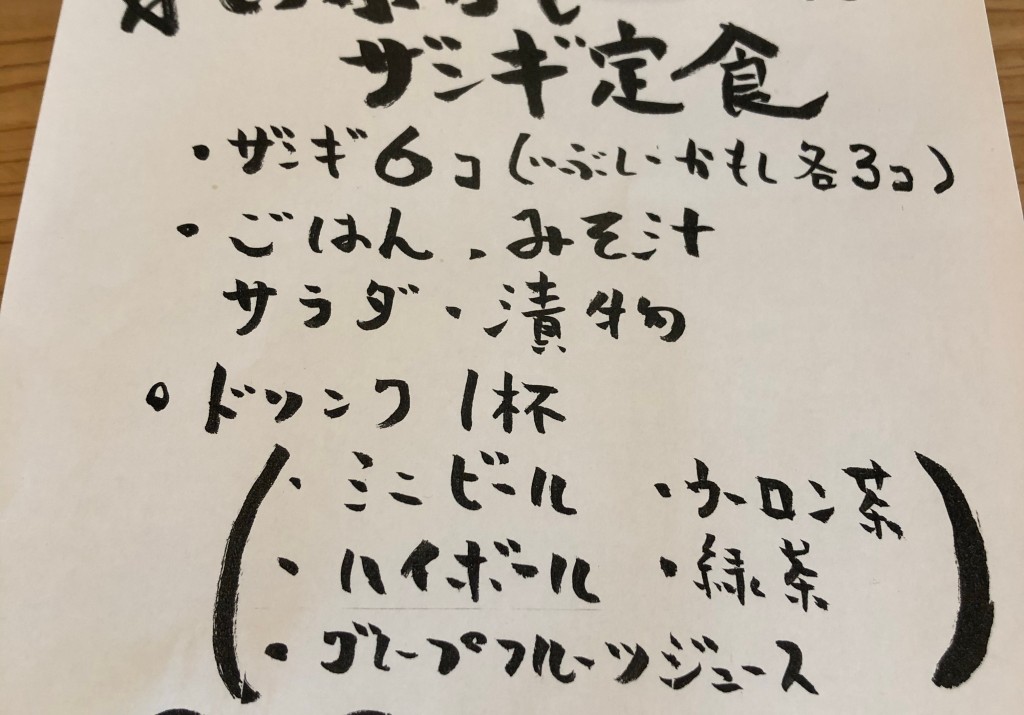 ザンギ定食
・ザンギ6コ(いぶし・かもし各3コ)
・ごはん、みそ汁
サラダ・漬物
・ドリンク1杯
・ミニビール ・ウーロン茶
・ハイボール ・緑茶
・グレープフルーツジュース